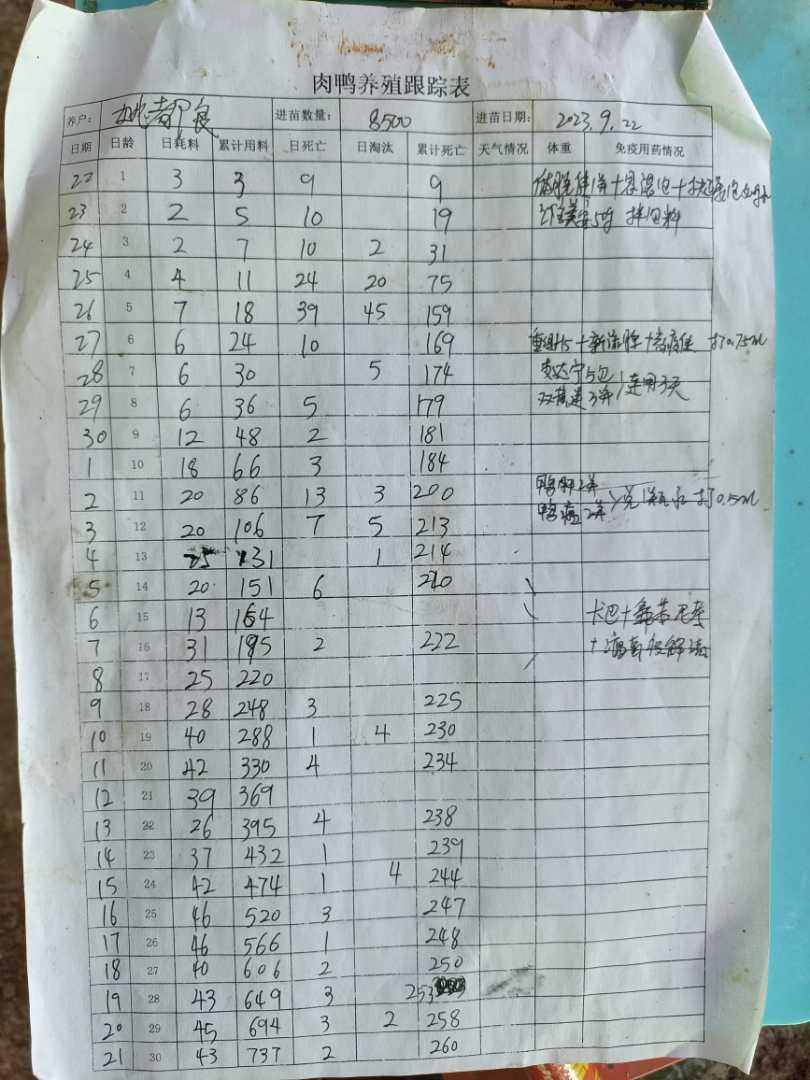 肉鸭养殖跟踪表
养户: 进苗数量: 8500 进苗日期: 2023.9.22
日期 日龄 日耗料 累计用料 日死亡 日淘汰 累计死亡 天气情况 体重 免疫用药情况
22 1 3 3 9 9
23 2 2 5 10 19
24 3 2 7 10 2 31
25 4 4 11 24 20 75
26 5 7 18 39 45 159
27 6 6 24 10 169 打0.75ml
28 7 6 30 5 174 5包
29 8 6 36 5 179 双黄连3 连用3天
30 9 12 48 2 181
1 10 18 66 3 184
2 11 20 86 13 3 200 打0.5ml
3 12 20 106 7 5 213
4 13 25 131 1 214
5 14 20 151 6 220
6 15 13 164
7 16 31 195 2 222
8 17 25 220
9 18 28 248 3 225
10 19 40 288 1 4 230
11 20 42 330 4 234
12 21 39 369
13 22 26 395 4 238
14 23 37 432 1 239
15 24 42 474 1 4 244
16 25 46 520 3 247
17 26 46 566 1 248
18 27 40 606 2 250
19 28 43 649 3 253
20 29 45 694 3 2 258
21 30 43 737 2 260